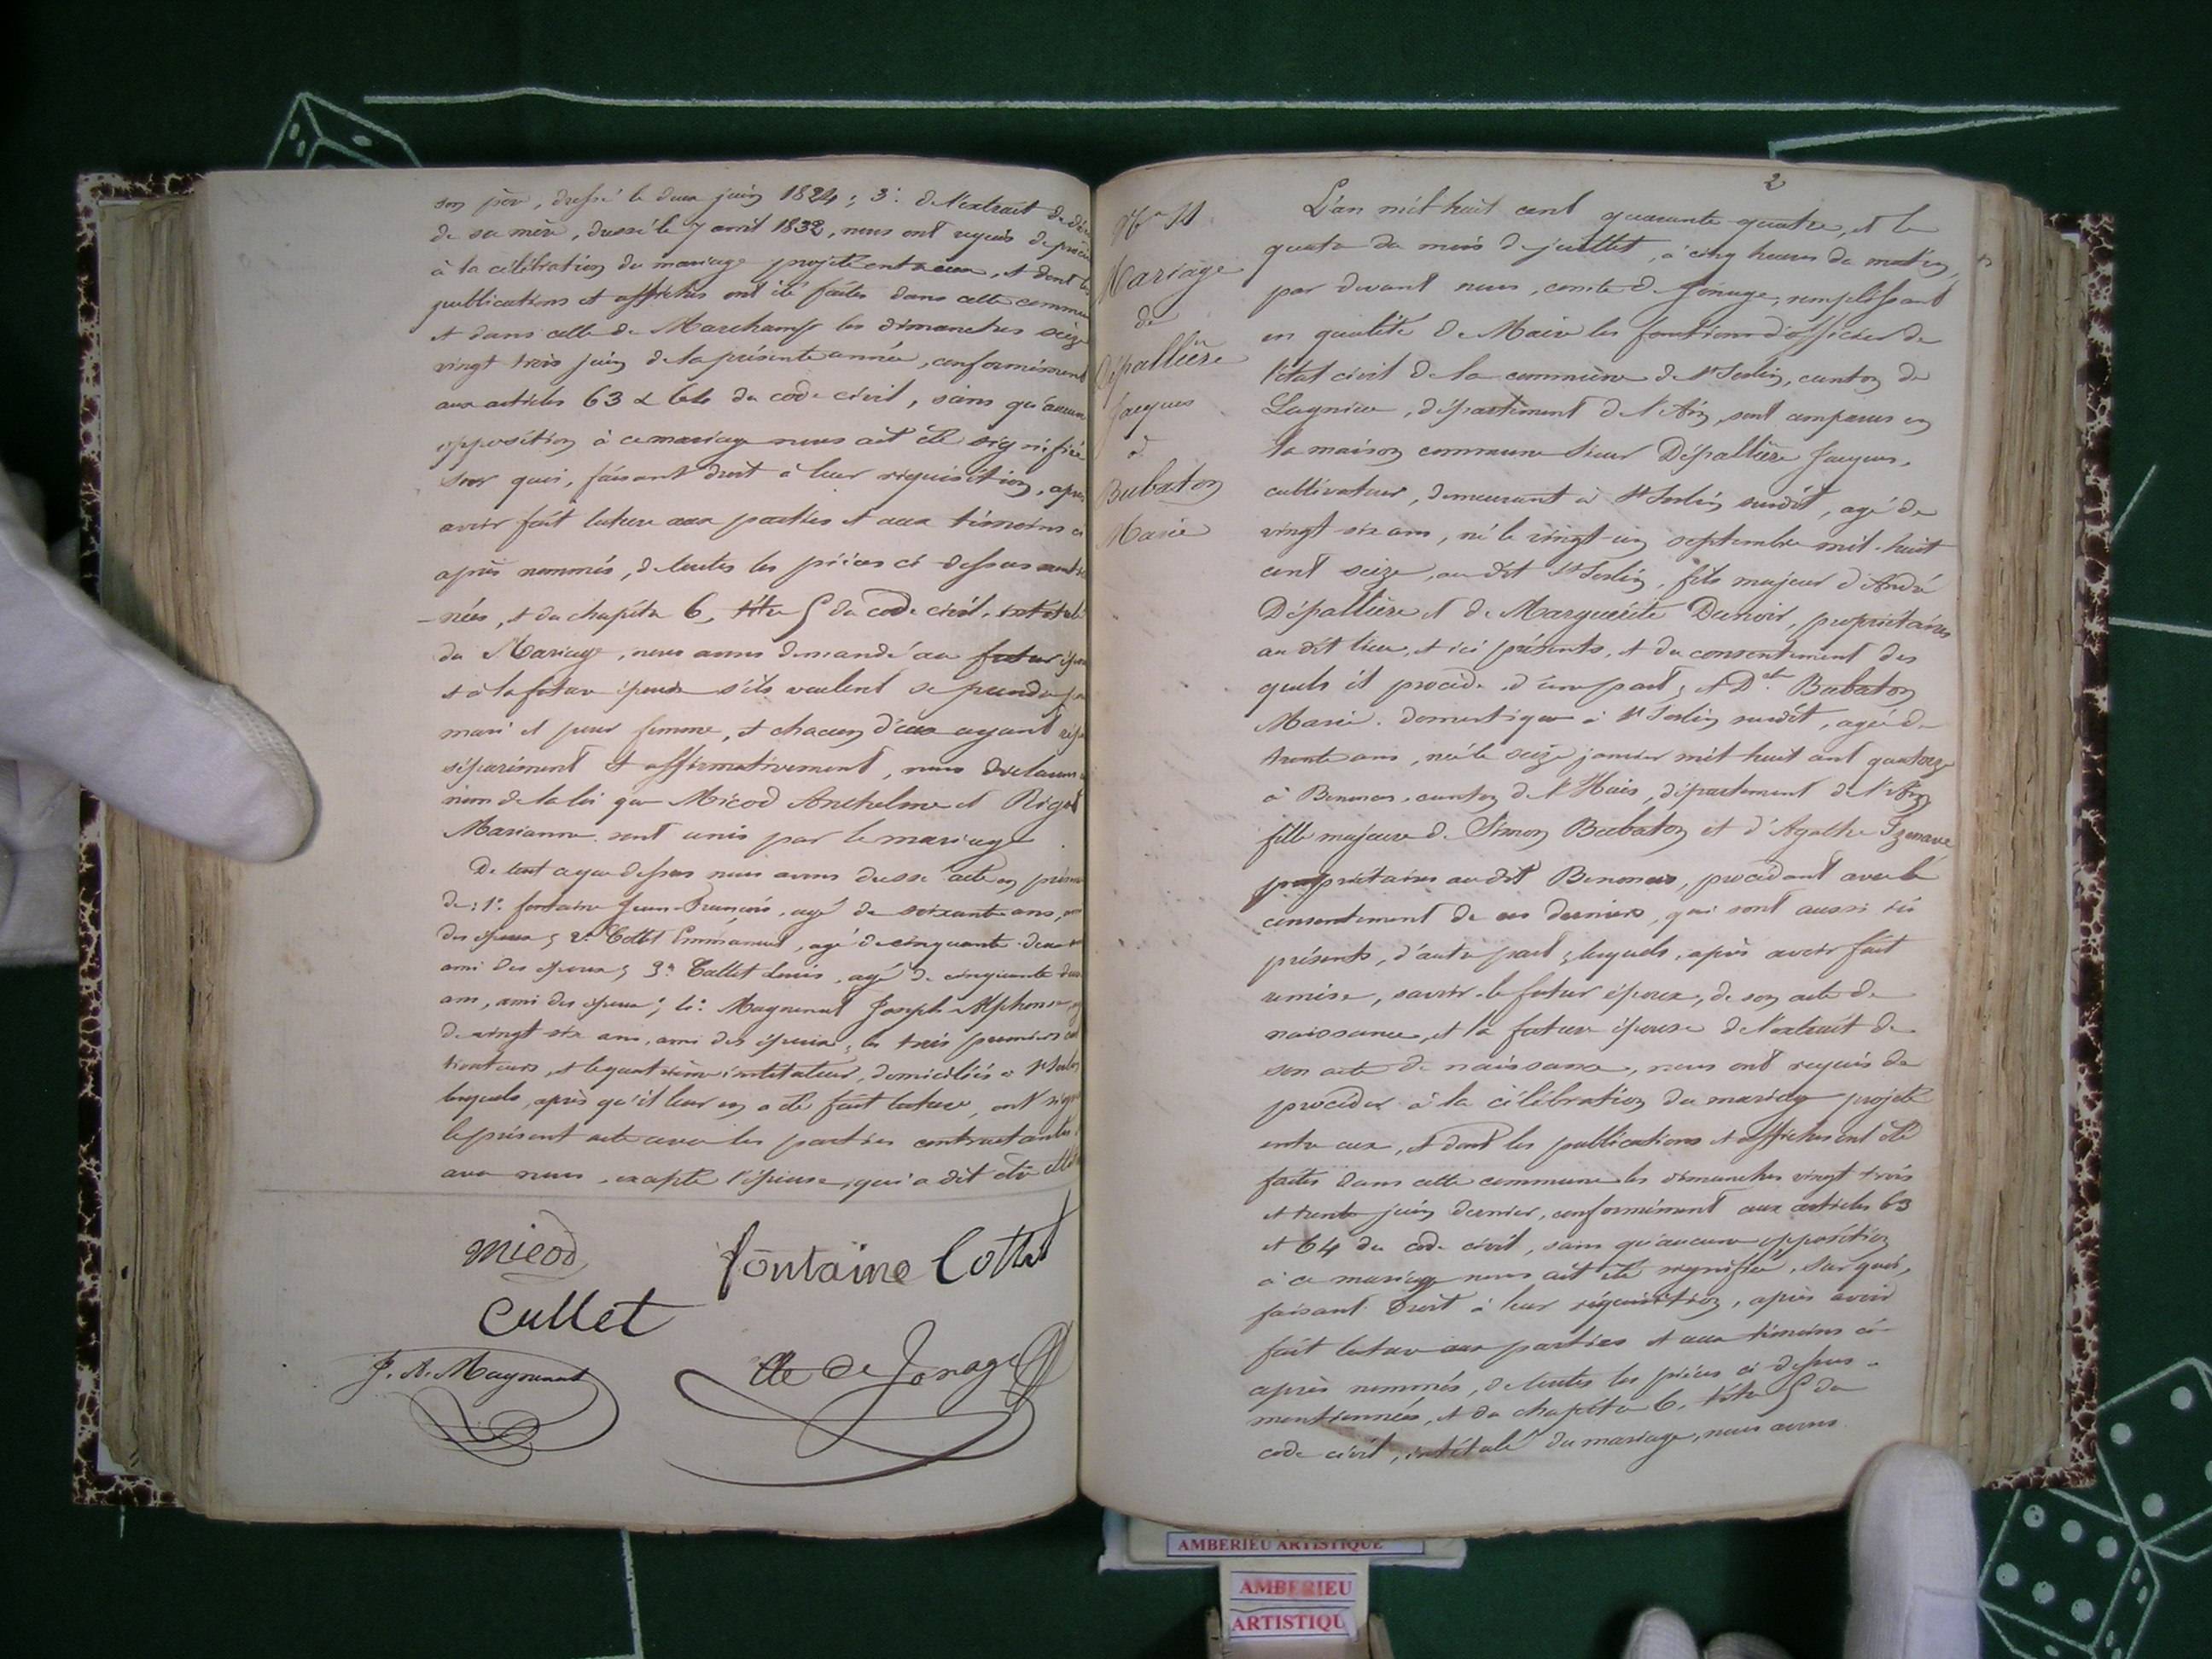 son père, dressé le deux juin 1824; 3.° de l'extrait de
de sa mère, dressé le 7 avril 1832, nous ont requis de
à la célébration du mariage projeté entr'eux, et dont les
publications et affiches ont été faites dans cette commune
et dans celle de Marchamp les dimanches seize
vingt trois juin de la présente année, conformément
aux articles 63 & 64 du code civil, sans qu'aucune
opposition à ce mariage nous ait été signifiée
Sur quoi, faisant droit à leur réquisition, après
avoir fait lecture aux parties et aux témoins ci
après nommés, de toutes les pièces ci-dessus
-nées, et du chapitre 6, titre 5 du code civil, intitulé
du Mariage, nous avons demandé au futur époux
et à la future épouse s'ils veulent se prendre pour
mari et pour femme, et chacun d'eux ayant
séparément et affirmativement, nous déclarons
nom de la loi que Micod Anthelme et Rigot
Marianne sont unis par le mariage.
De tout ce que dessus nous avons dressé acte en
de: 1.° fontaine Jean-François, agé de soixante ans,
des époux; 2.° Cottet Emmanuel, agé de cinquante deux
ami des époux; 3.° Cullet Louis, agé de cinquante
ans, ami des époux; 4.° Magnenat Joseph-Alphonse,
de vingt six ans, ami des époux; les trois premiers
et le quatrième instituteur, domiciliés à St Sorlin
lesquels, après qu'il leur en a été fait lecture, ont signé
le présent acte avec les parties contractantes
avec nous, excepté l'épouse, qui a dit
micod
fontaine Cottet
Cullet
J. A. Magnenat
Cte de Jonage
2
Mariage
de
Dépallière
Jacques
à
Bubaton
Marie
L'an mil huit cent quarante quatre, et le
quatre du mois de juillet, à cinq heures du matin,
par devant nous, comte de Jonage, remplissant
en qualité de Maire les fonctions d'officier de
l'état civil de la commune de St Sorlin, canton de
Lagnieu, département de l'Ain, sont comparus en
la maison commune Sieur Dépallière Jacques,
cultivateur, demeurant à St Sorlin susdit, agé de
vingt six ans, né le vingt-un septembre mil-huit
cent seize, au dit St Sorlin, fils majeur d'André
Dépallière et de Marguerite, propriétaires
au dit lieu, et ici présents, et du consentement des
quels il procède d'une part; et Dlle Bubaton
Marie, domestique à St Sorlin susdit, agée de
trente ans, née le seize janvier mil huit cent quatorze
à Benonces, canton de l'Huis, département de l'Ain
fille majeure de Simon Bubaton et d'Agathe
propriétaires au dit Benonces, procédant avec le
consentement de ces derniers, qui sont aussi ici
présents, d'autre part; lesquels, après avoir fait
remise, savoir le futur époux, de son acte de
naissance, et la future épouse de l'extrait de
son acte de naissance, nous ont requis de
procéder à la célébration du mariage projeté
entre eux, et dont les publications et affiches ont été
faites dans cette commune les dimanches vingt trois
et trente juin dernier, conformément aux articles 63
et 64 du code civil, sans qu'aucune opposition
à ce mariage nous ait été signifiée, Sur quoi,
faisant droit à leur réquisition, après avoir
fait lecture aux parties et aux témoins ci-
après nommés, de toutes les pièces ci-dessus
mentionnées, et du chapitre 6, titre 5 du
code civil, intitulé du mariage, nous avons
AMBERIEU ARTISTIQUE
AMBERIEU
ARTISTIQU